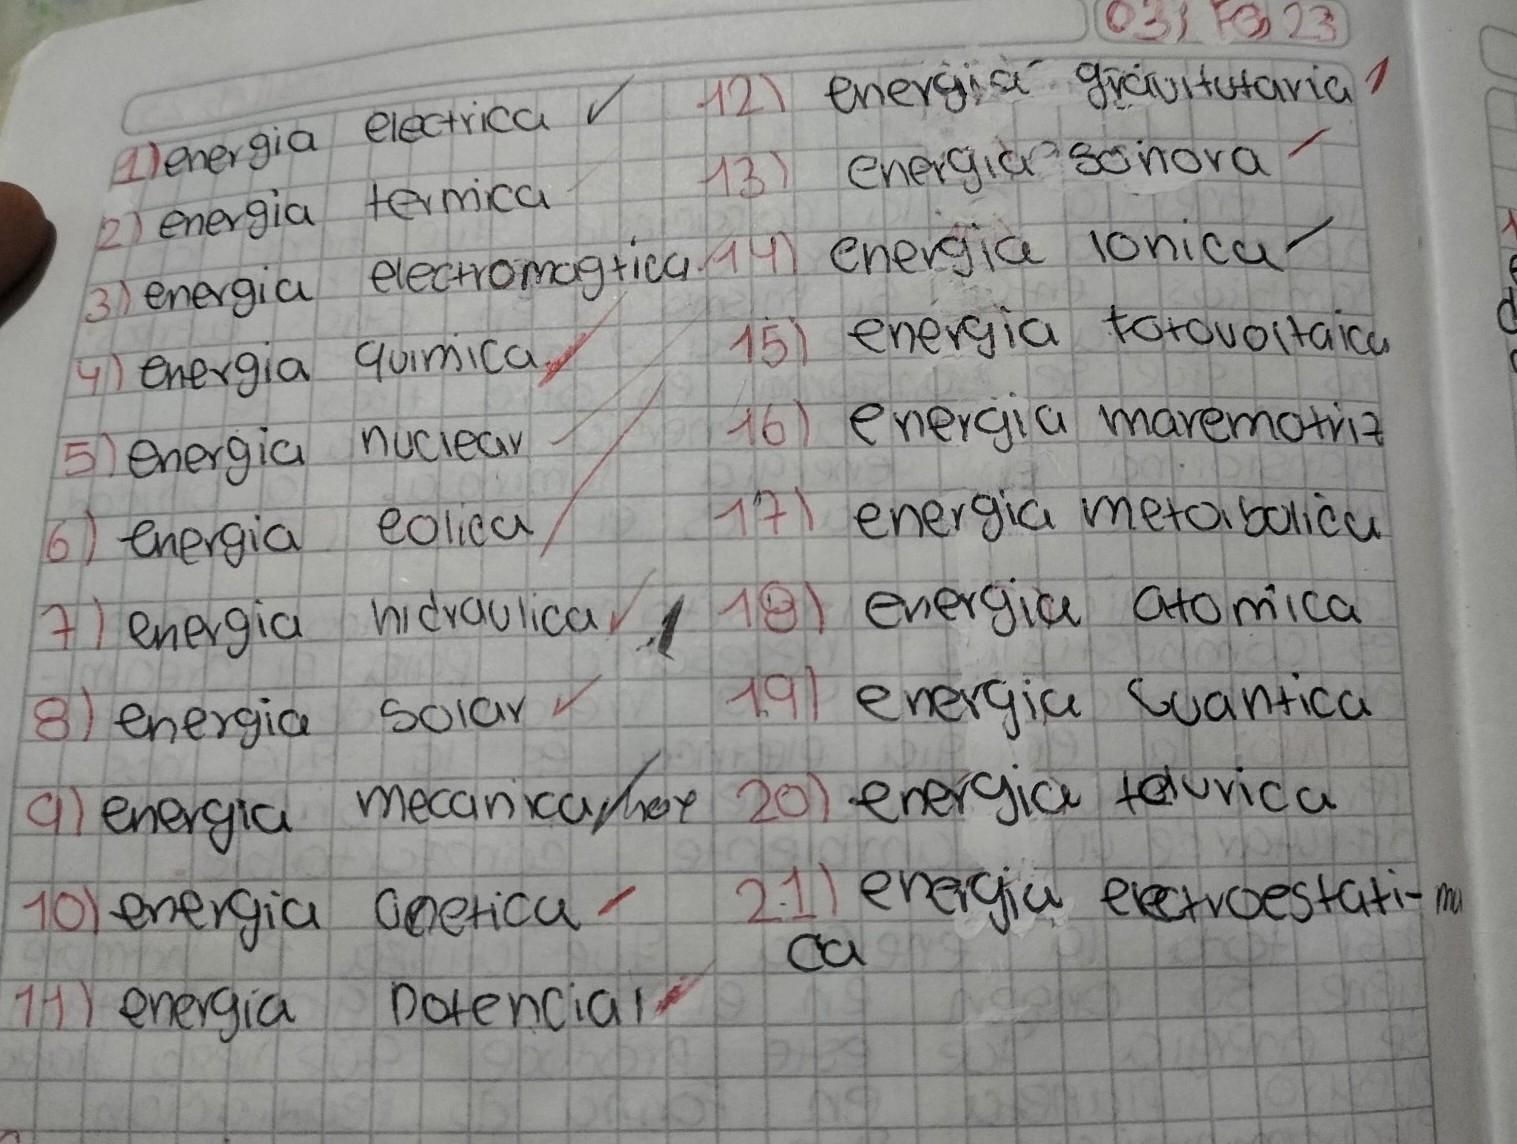 03, FB, 23
1) energia electrica
2) energia termica
3) energia electromagtica
4) energia quimica
5) energia nuclear
6) energia eolica
7) energia hidraulica
8) energia solar
9) energia mecanica
10) energia
11) energia potencial
12) energia gravitutaria
13) energia sonora
14) energia ionica
15) energia fotovoltaica
16) energia maremotriz
17) energia metabolica
18) energia atomica
19) energia cuantica
20) energia
21) energia electroestati-
ca